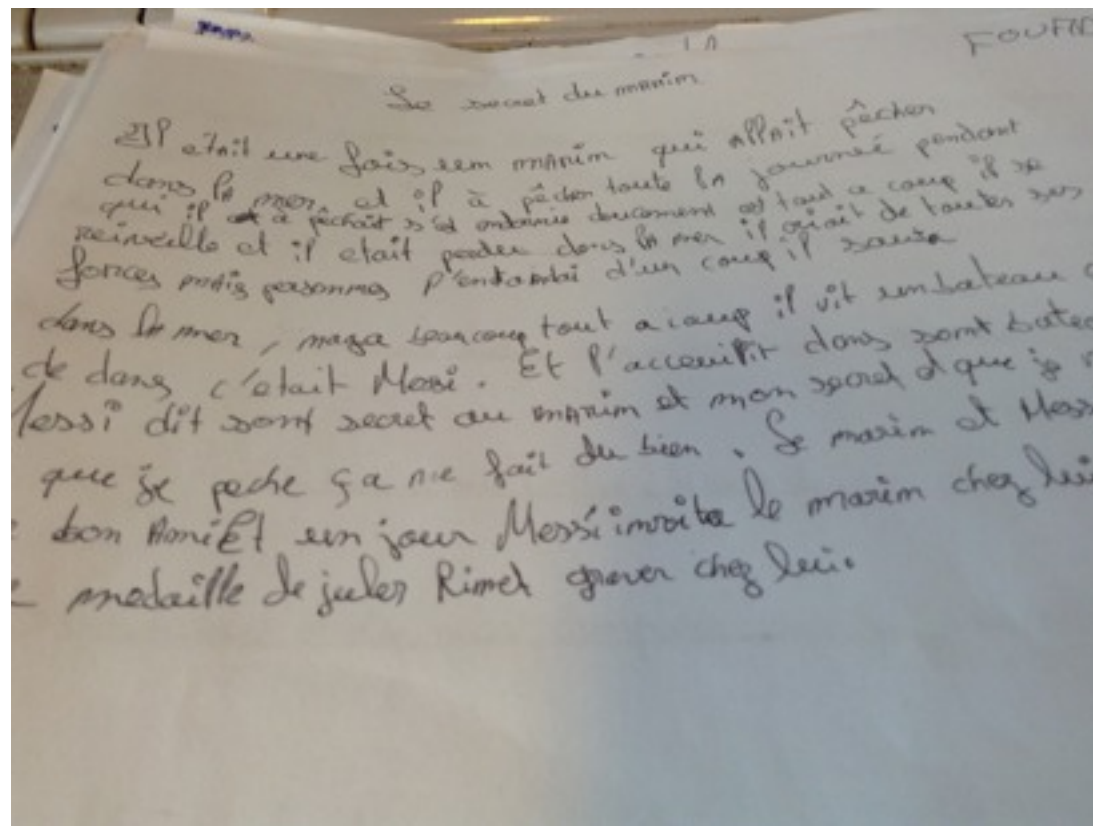 FOUFA
Le secret du marin
Il etait une fois un marin qui allait pêcher
dans la mer et il à pêcher toute la journeé pendant
qui il a pêchait s'est endormie doucement et tout a coup il se
reinveille et il etait perdu dans la mer il criait de toutes ses
forces mais personnes l'entambi d'un coup il sauta
dans la mer, naga beaucoup tout a coup il vit un bateau
de dans c'etait Messi. Et l'acceuillit dans sont bateau
Messi dit sont secret au marin et mon secret
que je peche ça me fait du bien. Le marin et Messi
bon Ami Et un jour Messi invita le marin chez lui
medaille de jules Rimet graver chez lui.